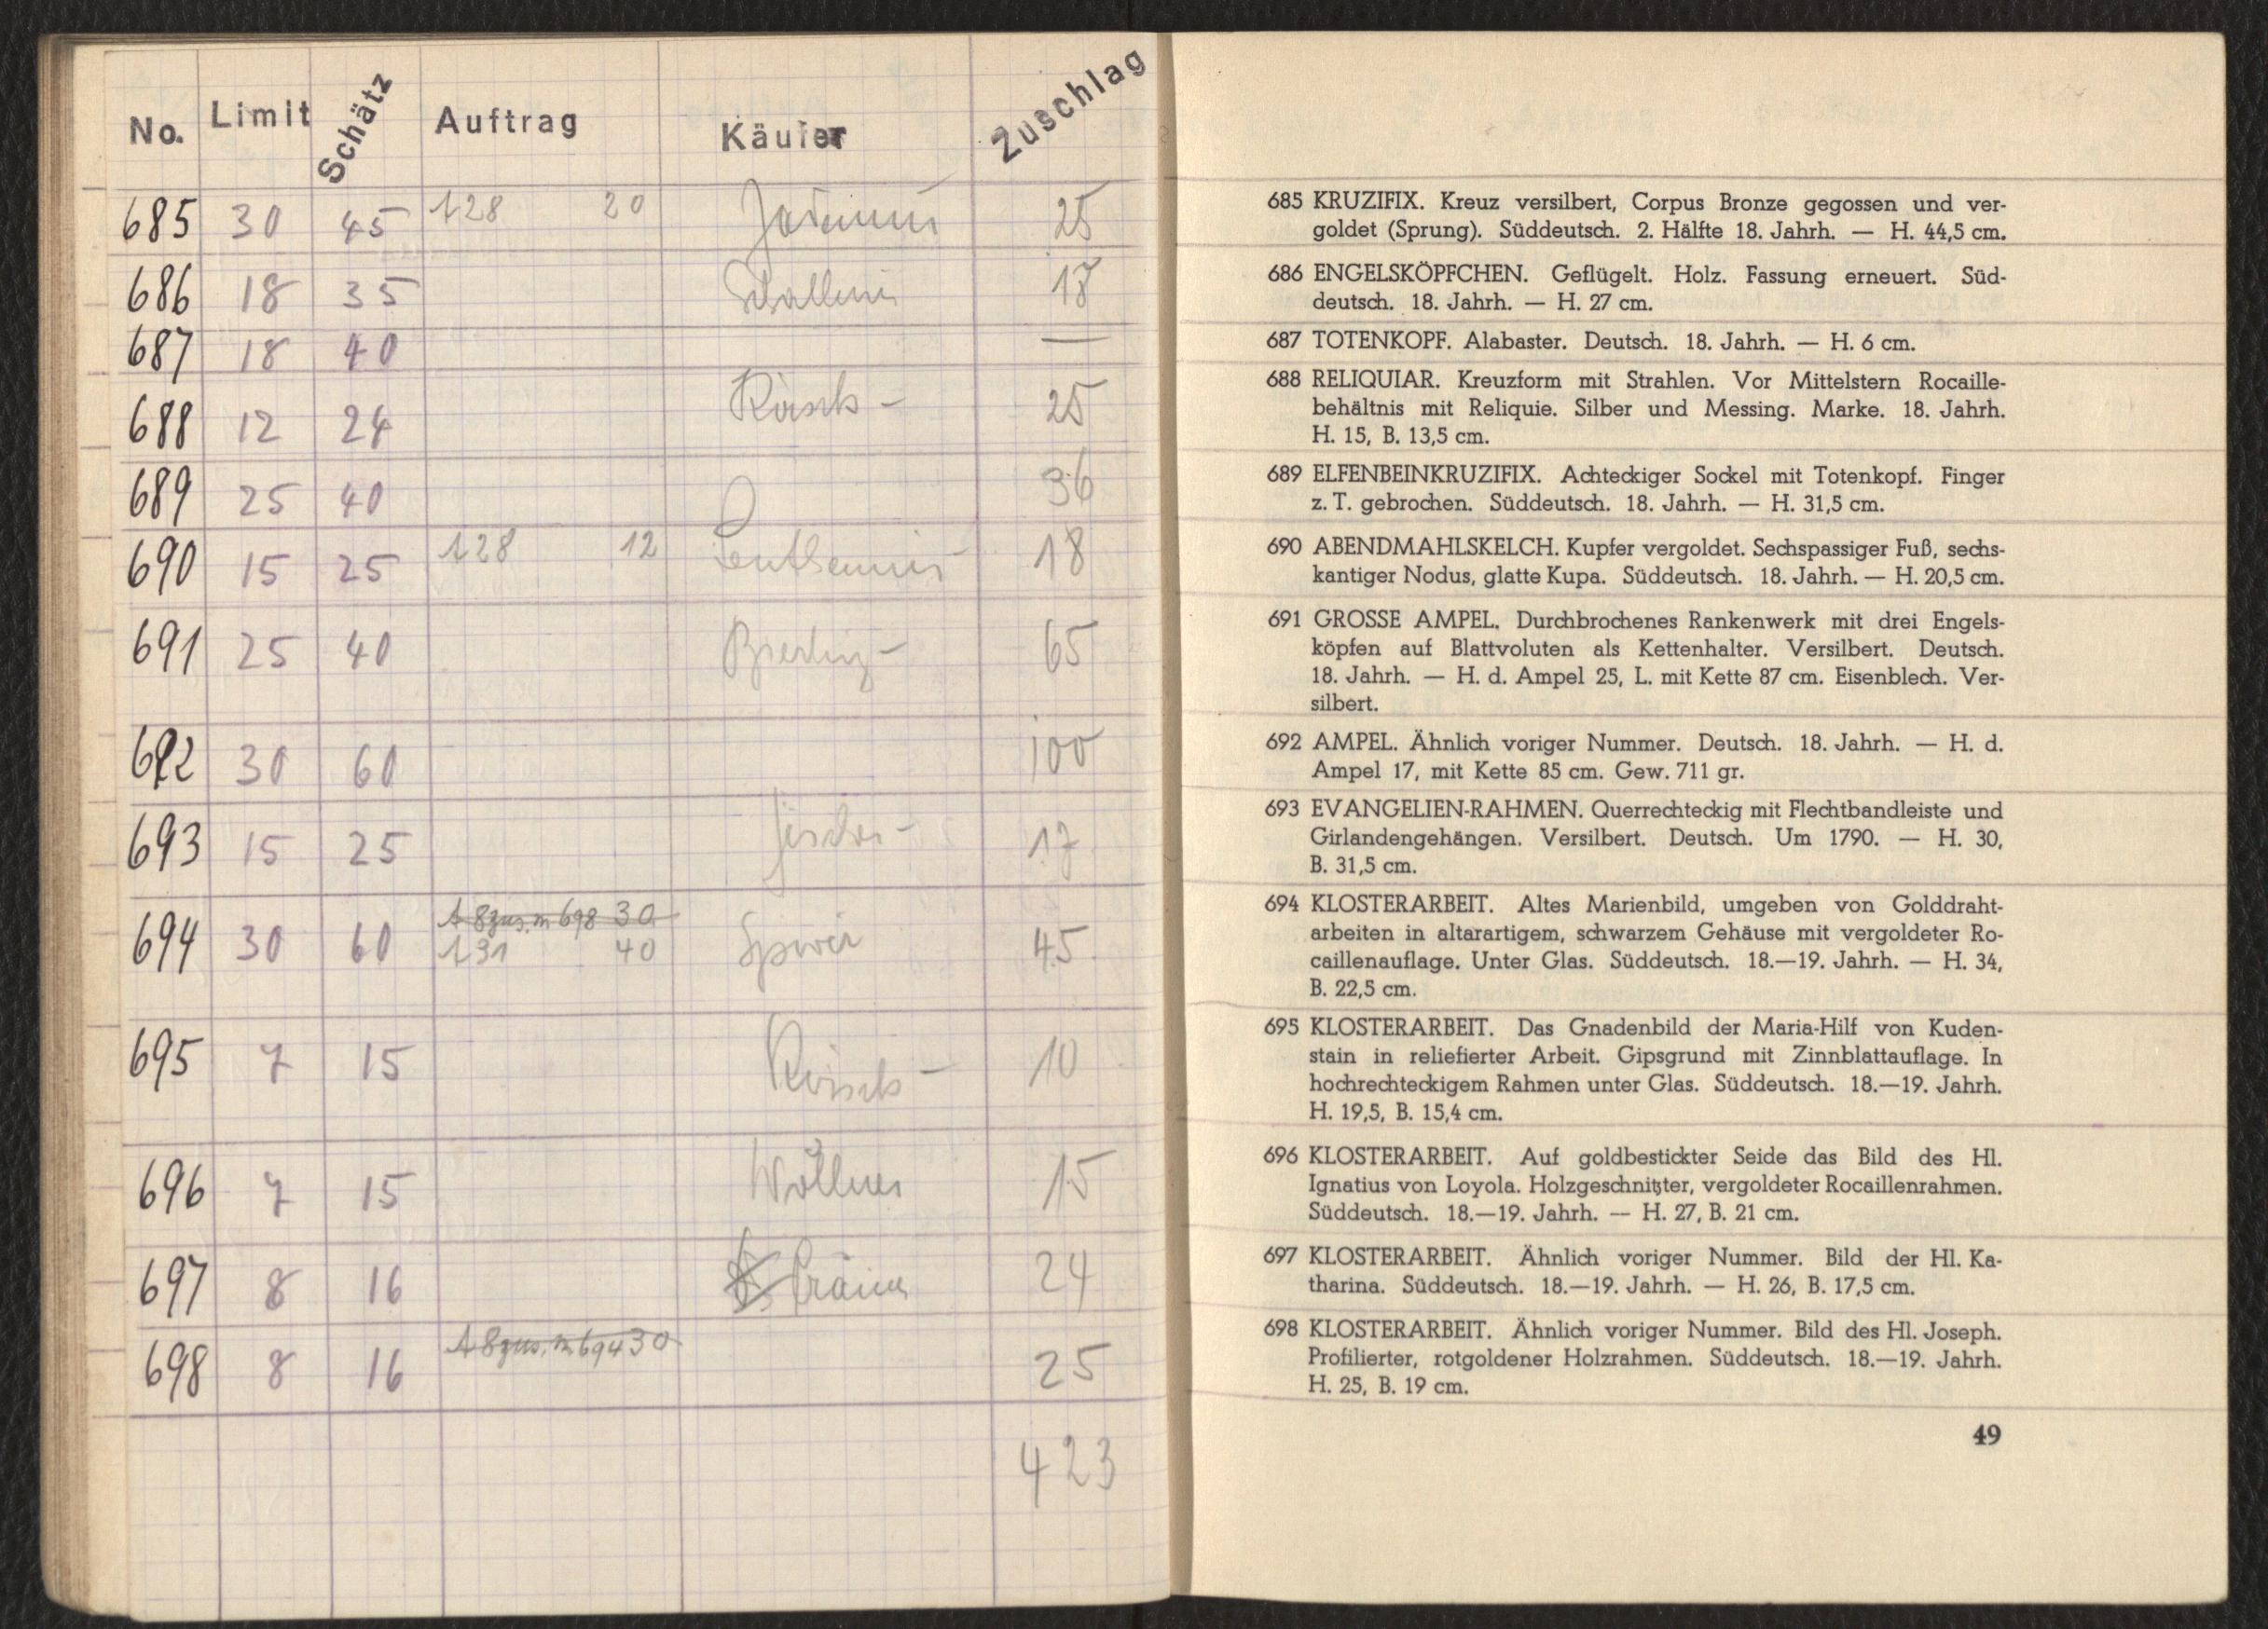 No. Limit Schätz Auftrag Käufer Zuschlag
685 30 45 128 20 25
686 18 35 18
687 18 40 —
688 12 24 25
689 25 40 36
690 15 25 128 12 18
691 25 40 65
692 30 60 100
693 15 25 17
694 30 60 A 8 zus. m 698 30
131 40 45
695 7 15 10
696 7 15 Wöllner 15
697 8 16 24
698 8 16 A 8 zus. m 694 30 25
423
685 KRUZIFIX. Kreuz versilbert, Corpus Bronze gegossen und ver-
goldet (Sprung). Süddeutsch. 2. Hälfte 18. Jahrh. — H. 44,5 cm.
686 ENGELSKÖPFCHEN. Geflügelt. Holz. Fassung erneuert. Süd-
deutsch. 18. Jahrh. — H. 27 cm.
687 TOTENKOPF. Alabaster. Deutsch. 18. Jahrh. — H. 6 cm.
688 RELIQUIAR. Kreuzform mit Strahlen. Vor Mittelstern Rocaille-
behältnis mit Reliquie. Silber und Messing. Marke. 18. Jahrh.
H. 15, B. 13,5 cm.
689 ELFENBEINKRUZIFIX. Achteckiger Sockel mit Totenkopf. Finger
z. T. gebrochen. Süddeutsch. 18. Jahrh. — H. 31,5 cm.
690 ABENDMAHLSKELCH. Kupfer vergoldet. Sechspassiger Fuß, sechs-
kantiger Nodus, glatte Kupa. Süddeutsch. 18. Jahrh. — H. 20,5 cm.
691 GROSSE AMPEL. Durchbrochenes Rankenwerk mit drei Engels-
köpfen auf Blattvoluten als Kettenhalter. Versilbert. Deutsch.
18. Jahrh. — H. d. Ampel 25, L. mit Kette 87 cm. Eisenblech. Ver-
silbert.
692 AMPEL. Ähnlich voriger Nummer. Deutsch. 18. Jahrh. — H. d.
Ampel 17, mit Kette 85 cm. Gew. 711 gr.
693 EVANGELIEN-RAHMEN. Querrechteckig mit Flechtbandleiste und
Girlandengehängen. Versilbert. Deutsch. Um 1790. — H. 30,
B. 31,5 cm.
694 KLOSTERARBEIT. Altes Marienbild, umgeben von Golddraht-
arbeiten in altarartigem, schwarzem Gehäuse mit vergoldeter Ro-
caillenauflage. Unter Glas. Süddeutsch. 18.—19. Jahrh. — H. 34,
B. 22,5 cm.
695 KLOSTERARBEIT. Das Gnadenbild der Maria-Hilf von Kuden-
stain in reliefierter Arbeit. Gipsgrund mit Zinnblattauflage. In
hochrechteckigem Rahmen unter Glas. Süddeutsch. 18.—19. Jahrh.
H. 19,5, B. 15,4 cm.
696 KLOSTERARBEIT. Auf goldbestickter Seide das Bild des Hl.
Ignatius von Loyola. Holzgeschnitzter, vergoldeter Rocaillenrahmen.
Süddeutsch. 18.—19. Jahrh. — H. 27, B. 21 cm.
697 KLOSTERARBEIT. Ähnlich voriger Nummer. Bild der Hl. Ka-
tharina. Süddeutsch. 18.—19. Jahrh. — H. 26, B. 17,5 cm.
698 KLOSTERARBEIT. Ähnlich voriger Nummer. Bild des Hl. Joseph.
Profilierter, rotgoldener Holzrahmen. Süddeutsch. 18.—19. Jahrh.
H. 25, B. 19 cm.
49